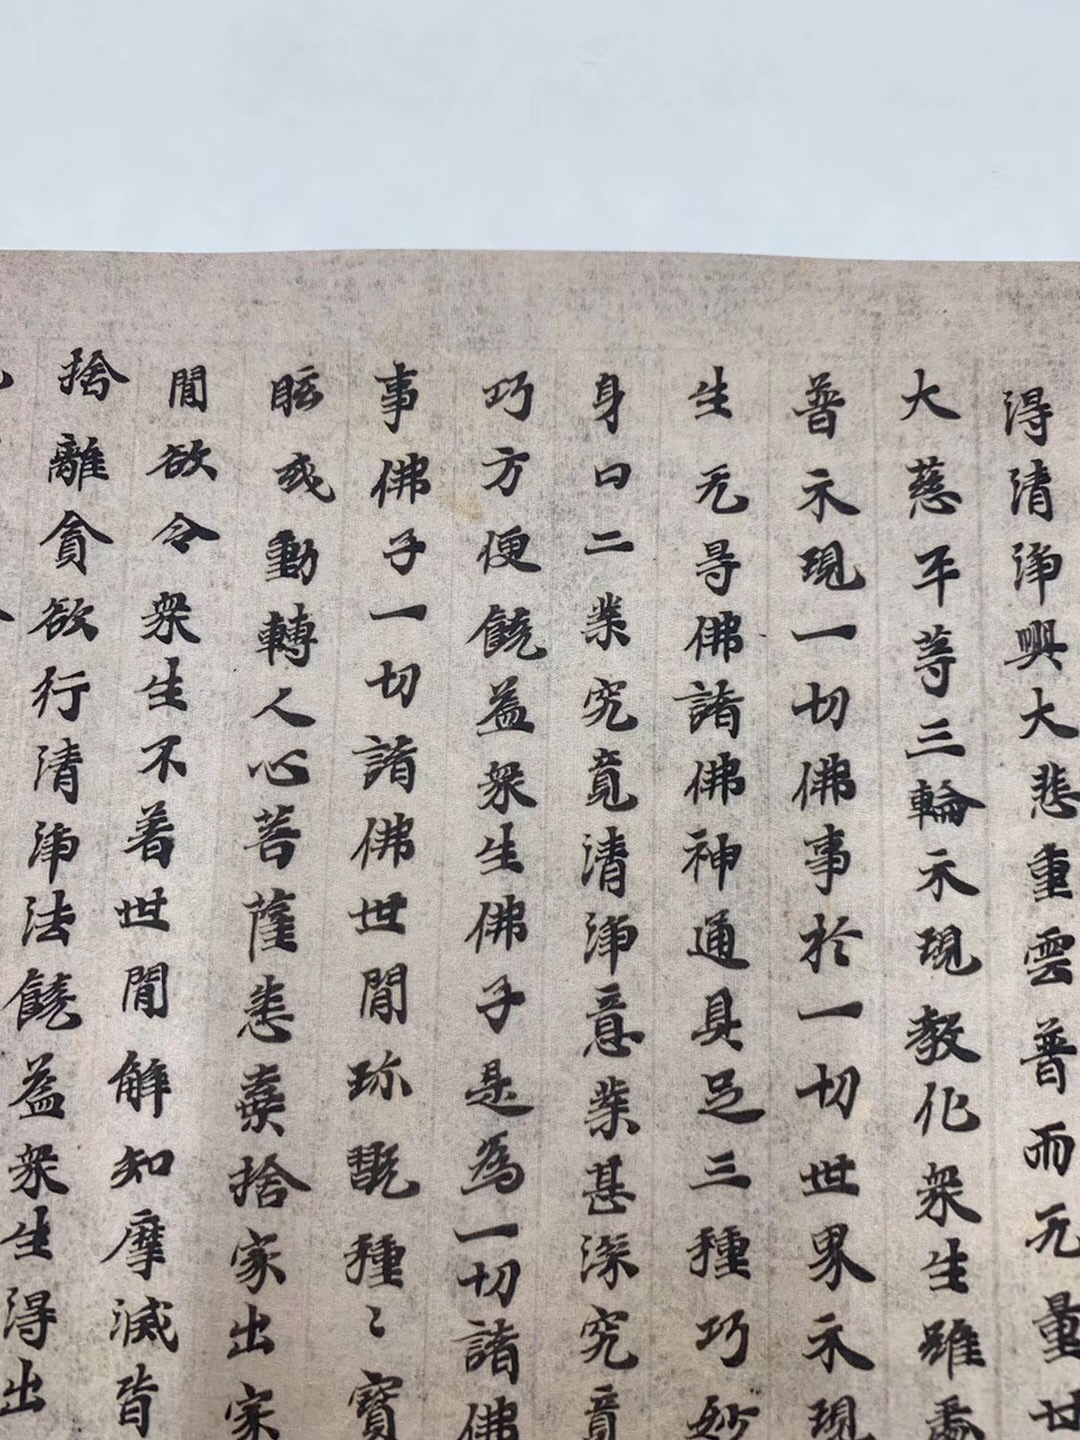 得清淨興大悲重雲普而无量世
大慈平等三輪示現教化衆生雖為
普示現一切佛事於一切世界示現
生无㝵佛諸佛神通具足三種巧妙
身口二業究竟清淨意業甚深究竟
巧方便饒益衆生佛子是為一切諸佛
事佛子一切諸佛世間珎翫種〻寶
眩或動轉人心菩薩悉棄捨家出家
間欲令衆生不著世間解知摩滅皆
捨離貪欲行清淨法饒益衆生得出